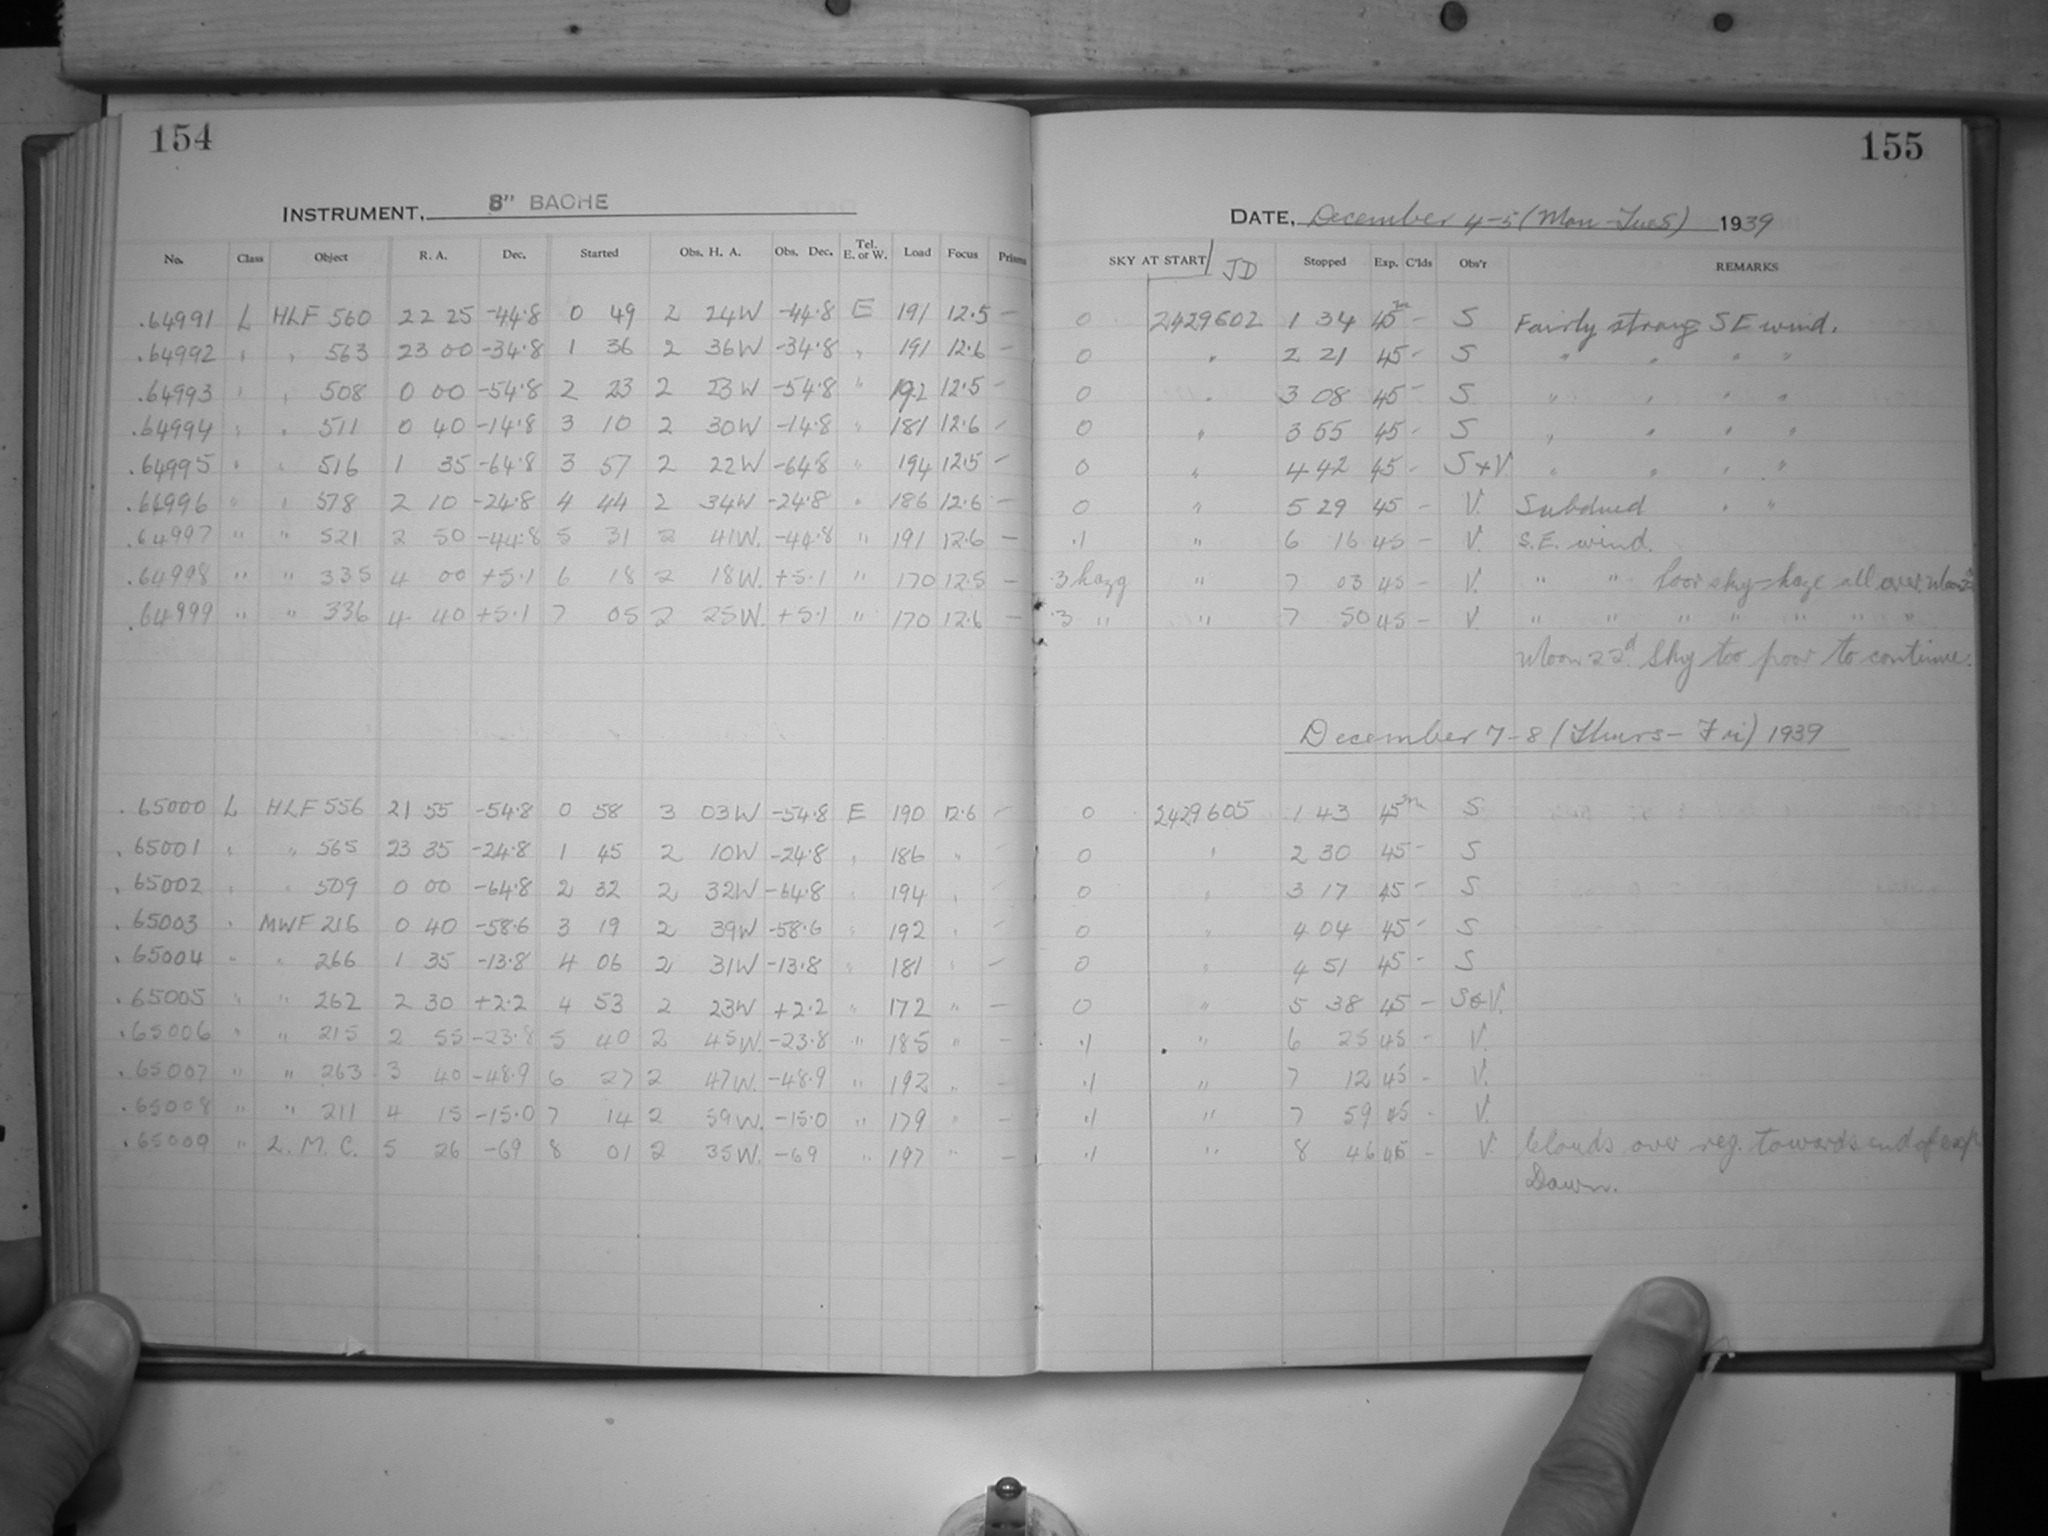 154
INSTRUMENT, 8" BACHE
No. Class Object R. A. Dec. Started Obs. H. A. Obs. Dec. Tel. E. or W. Load Focus Prisms
.64991 L HLF 560 22 25 -44.8 0 49 2 24W -44.8 E 191 12.5 —
.64992 " " 563 23 00 -34.8 1 36 2 36W -34.8 " 191 12.6 —
.64993 " " 508 0 00 -54.8 2 23 2 23W -54.8 " 192 12.5 —
.64994 " " 511 0 40 -14.8 3 10 2 30W -14.8 " 181 12.6 —
.64995 " " 516 1 35 -64.8 3 57 2 22W -64.8 " 194 12.5 —
.64996 " " 578 2 10 -24.8 4 44 2 34W -24.8 " 186 12.6 —
.64997 " " 521 2 50 -44.8 5 31 2 41W. -44.8 " 191 12.6 —
.64998 " " 335 4 00 +5.1 6 18 2 18W. +5.1 " 170 12.5 —
.64999 " " 336 4 40 +5.1 7 05 2 25W. +5.1 " 170 12.6 —
.65000 L HLF 556 21 55 -54.8 0 58 3 03W -54.8 E 190 12.6 —
.65001 " " 565 23 35 -24.8 1 45 2 10W -24.8 " 186 " —
.65002 " " 509 0 00 -64.8 2 32 2 32W -64.8 " 194 " —
.65003 " MWF 216 0 40 -58.6 3 19 2 39W -58.6 " 192 " —
.65004 " " 266 1 35 -13.8 4 06 2 31W -13.8 " 181 " —
.65005 " " 262 2 30 +2.2 4 53 2 23W +2.2 " 172 " —
.65006 " " 215 2 55 -23.8 5 40 2 45W. -23.8 " 185 " —
.65007 " " 263 3 40 -48.9 6 27 2 47W. -48.9 " 192 " —
.65008 " " 211 4 15 -15.0 7 14 2 59W. -15.0 " 179 " —
.65009 " L. M. C. 5 26 -69 8 01 2 35W. -69 " 197 " —
155
DATE, December 4-5 (Mon-Tues) 1939
SKY AT START / JD Stopped Exp. C'lds Obs'r REMARKS
0 2429602 1 34 45m — S Fairly strong S E wind.
0 " 2 21 45 — S " " " "
0 " 3 08 45 — S " " " "
0 " 3 55 45 — S " " " "
0 " 4 42 45 — S + V " " " "
0 " 5 29 45 — V. Subdued " "
.1 " 6 16 45 — V. S.E. wind.
.3 hazy " 7 03 45 — V. " " Poor sky-haze all over. Moon
.3 " " 7 50 45 — V. " " " " " " "
Moon 22d. Sky too poor to continue.
December 7-8 (Thurs-Fri) 1939
0 2429605 1 43 45m S
0 " 2 30 45 — S
0 " 3 17 45 — S
0 " 4 04 45 — S
0 " 4 51 45 — S
0 " 5 38 45 — S & V.
.1 " 6 25 45 — V.
.1 " 7 12 45 — V.
.1 " 7 59 45 — V.
.1 " 8 46 45 — V. Clouds over reg. towards end of exp.
Dawn.